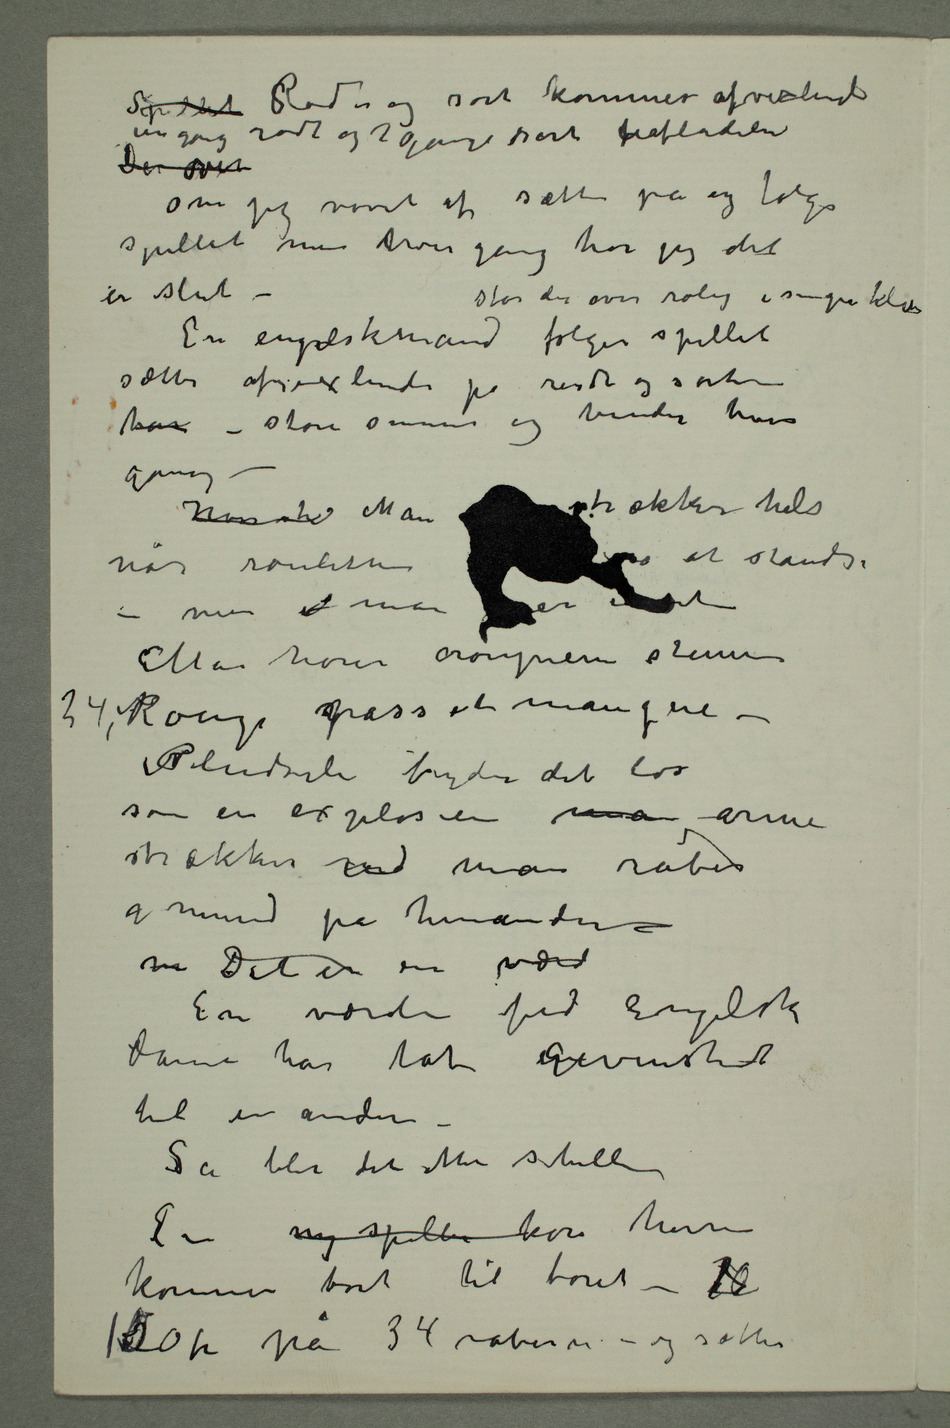 Spillet Rødt og sort kommer afvexlende
en gang rødt og 2 gange sort
Der
om jeg vovet at sætte på og følge
spillet men hver gang har jeg det
er slut –
står der over rolig i
En engelskmand følger spillet
sætter afvexlende på rødt og sort
han – store summer og vinder hver
gang –
Man strækker hals
når rouletten at standse
– men man er
Man hører croupierens stemme
34, Rouge passe et manque –
Pludselig bryder det løs
som en explosion man arme
strækkes man råber
a mund på hinanden –
m Det er en
En værdig fed Engelsk
dame har tat gevinsten
til en anden –
Så blir det atter stille
En ny spiller kom herre
kommer bort til boret –
fr på 34 råber n – og sætter